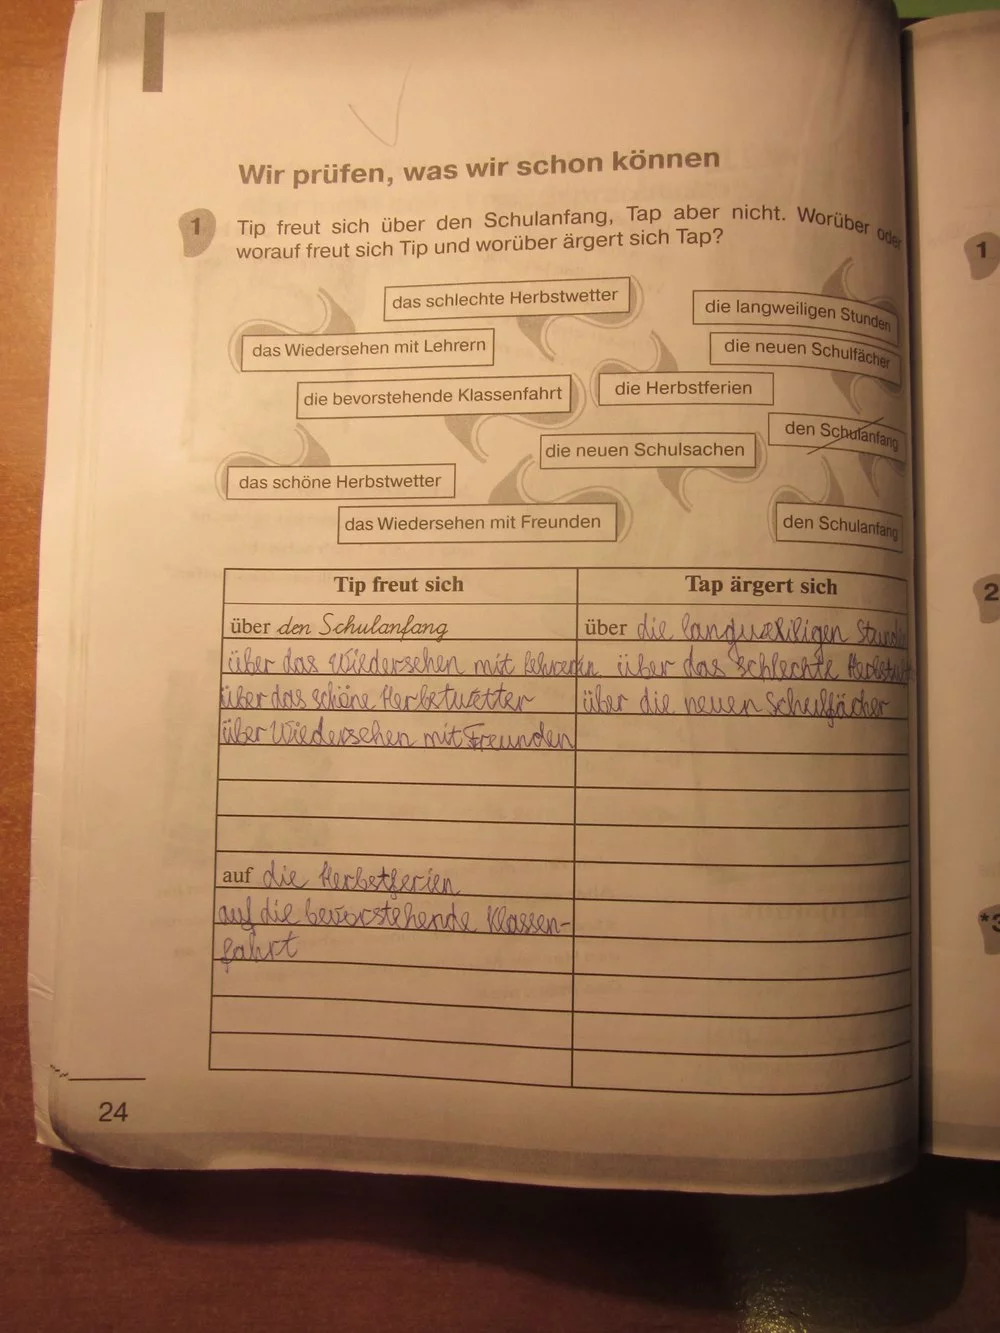 Wir prüfen, was wir schon können
1 Tip freut sich über den Schulanfang, Tap aber nicht. Worüber oder
worauf freut sich Tip und worüber ärgert sich Tap?
das schlechte Herbstwetter
die langweiligen Stunden
das Wiedersehen mit Lehrern
die neuen Schulfächer
die bevorstehende Klassenfahrt
die Herbstferien
den Schulanfang
die neuen Schulsachen
das schöne Herbstwetter
das Wiedersehen mit Freunden
den Schulanfang
Tip freut sich
Tap ärgert sich
über den Schulanfang
über die langweiligen Stunden
über das Wiedersehen mit Lehrern
über das schlechte
über das schöne Herbstwetter
über die neuen Schulfächer
über Wiedersehen mit Freunden
auf die Herbstferien
auf die bevorstehende Klassen-
fahrt
24
1
2
*3